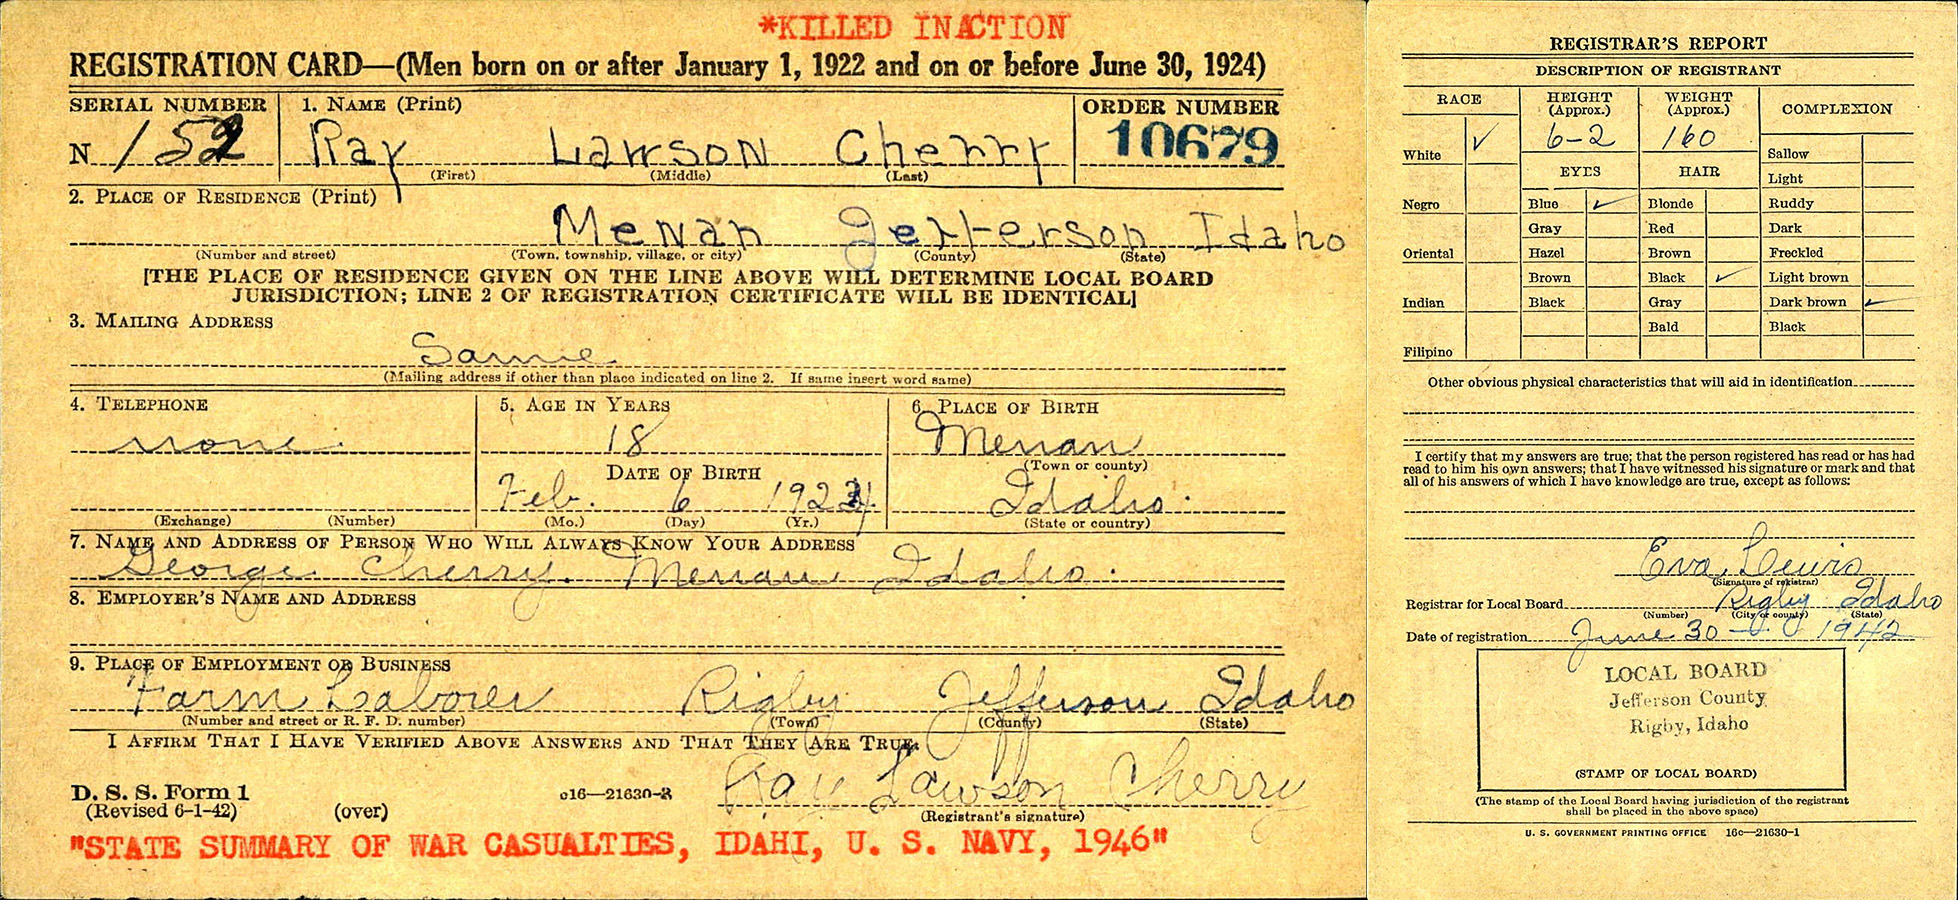 *KILLED IN ACTION
REGISTRATION CARD—(Men born on or after January 1, 1922 and on or before June 30, 1924)
SERIAL NUMBER
1. NAME (Print)
ORDER NUMBER
N 152
Ray Lawson Cherry
10679
(First) (Middle) (Last)
2. PLACE OF RESIDENCE (Print)
Menan Jefferson Idaho
(Number and street) (Town, township, village, or city) (County) (State)
[THE PLACE OF RESIDENCE GIVEN ON THE LINE ABOVE WILL DETERMINE LOCAL BOARD
JURISDICTION; LINE 2 OF REGISTRATION CERTIFICATE WILL BE IDENTICAL]
3. MAILING ADDRESS
Same
(Mailing address if other than place indicated on line 2. If same insert word same)
4. TELEPHONE
none.
(Exchange) (Number)
5. AGE IN YEARS
18
DATE OF BIRTH
Feb. 6 1924.
(Mo.) (Day) (Yr.)
6. PLACE OF BIRTH
Menan
(Town or county)
Idaho.
(State or country)
7. NAME AND ADDRESS OF PERSON WHO WILL ALWAYS KNOW YOUR ADDRESS
George Cherry. Menan Idaho.
8. EMPLOYER'S NAME AND ADDRESS
9. PLACE OF EMPLOYMENT OR BUSINESS
Farm Laborer Rigby Jefferson Idaho
(Number and street or R. F. D. number) (Town) (County) (State)
I AFFIRM THAT I HAVE VERIFIED ABOVE ANSWERS AND THAT THEY ARE TRUE.
Ray Lawson Cherry
D. S. S. Form 1
(Revised 6-1-42) (over) c16—21630-2 (Registrant's signature)
"STATE SUMMARY OF WAR CASUALTIES, IDAHI, U. S. NAVY, 1946"
REGISTRAR'S REPORT
DESCRIPTION OF REGISTRANT
RACE
White ✓
Negro
Oriental
Indian
Filipino
HEIGHT
(Approx.)
6-2
EYES
Blue ✓
Gray
Hazel
Brown
Black
WEIGHT
(Approx.)
160
HAIR
Blonde
Red
Brown
Black ✓
Gray
Bald
COMPLEXION
Sallow
Light
Ruddy
Dark
Freckled
Light brown
Dark brown ✓
Black
Other obvious physical characteristics that will aid in identification
I certify that my answers are true; that the person registered has read or has had
read to him his own answers; that I have witnessed his signature or mark and that
all of his answers of which I have knowledge are true, except as follows:
Eva Lewis
(Signature of registrar)
Registrar for Local Board Rigby Idaho
(Number) (City or county) (State)
Date of registration June 30 — 1942
LOCAL BOARD
Jefferson County
Rigby, Idaho
(STAMP OF LOCAL BOARD)
(The stamp of the Local Board having jurisdiction of the registrant
shall be placed in the above space)
U. S. GOVERNMENT PRINTING OFFICE 16c—21630-1